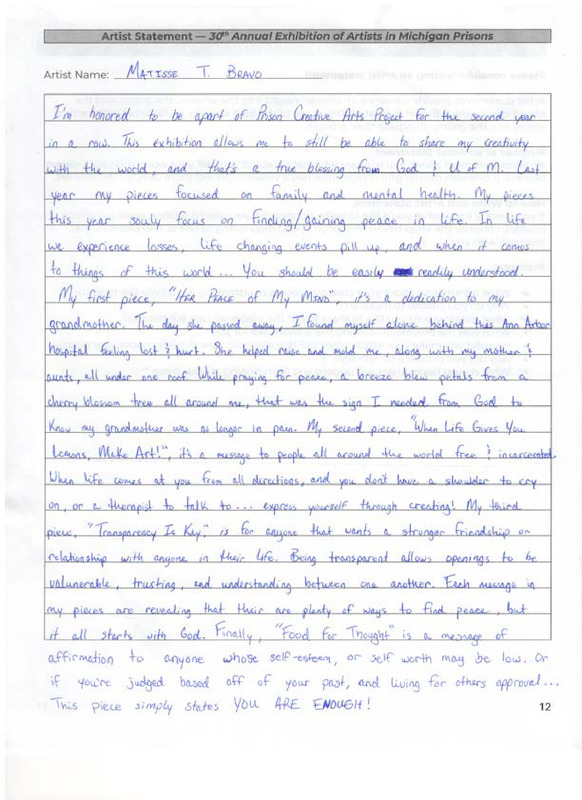 Artist Statement — 30th Annual Exhibition of Artists in Michigan Prisons
Artist Name: MATISSE T. BRAVO
I'm honored to be apart of Prison Creative Arts Project for the second year
in a row. This exhibition allows me to still be able to share my creativity
with the world, and that's a true blessing from God & U of M. Last
year my pieces focused on family and mental health. My pieces
this year souly focus on finding/gaining peace in life. In life
we experience losses, life changing events pill up, and when it comes
to things of this world... You should be easily readily understood.
My first piece, "HER PEACE of MY MIND", it's a dedication to my
grandmother. The day she passed away, I found myself alone behind this Ann Arbor
hospital feeling lost & hurt. She helped raise and mold me, along with my mother &
aunts, all under one roof. While praying for peace, a breeze blew petals from a
cherry blossom tree all around me, that was the sign I needed from God to
know my grandmother was no longer in pain. My second piece, "When Life Gives You
Lemons, Make Art!", it's a message to people all around the world free & incarcerated.
When life comes at you from all directions, and you don't have a shoulder to cry
on, or a therapist to talk to... express yourself through creating! My third
piece, "Transparency Is Key," is for anyone that wants a stronger friendship or
relationship with anyone in their life. Being transparent allows openings to be
valunerable, trusting, and understanding between one another. Each message in
my pieces are revealing that their are plenty of ways to find peace, but
it all starts with God. Finally, "Food For Thought" is a message of
affirmation to anyone whose self-esteem, or self worth may be low. Or
if you're judged based off of your past, and living for others approval...
This piece simply states YOU ARE ENOUGH!
12